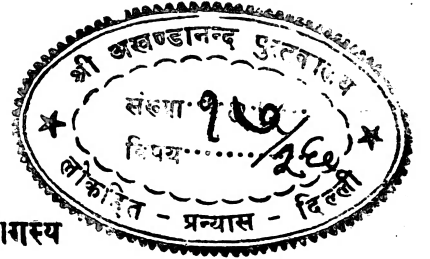 श्री अखण्डानन्द पुस्तकालय
संख्या १७/२६
विषय
लोकहित - प्रन्यास - दिल्ली
गस्य